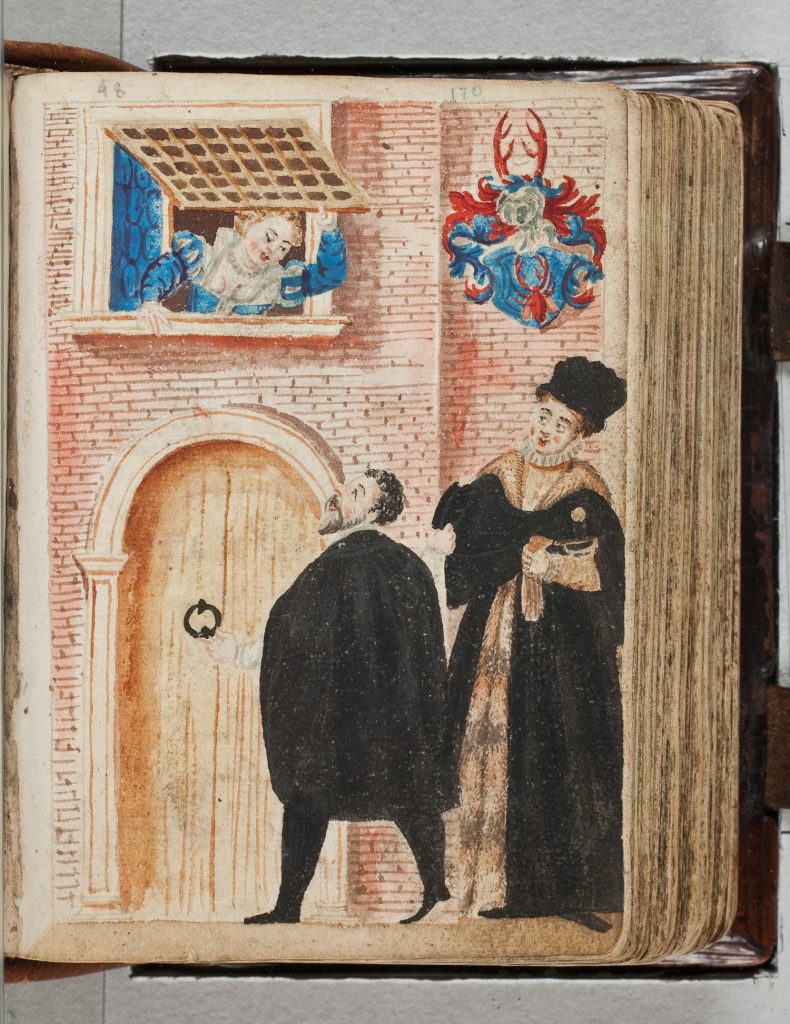 98
170